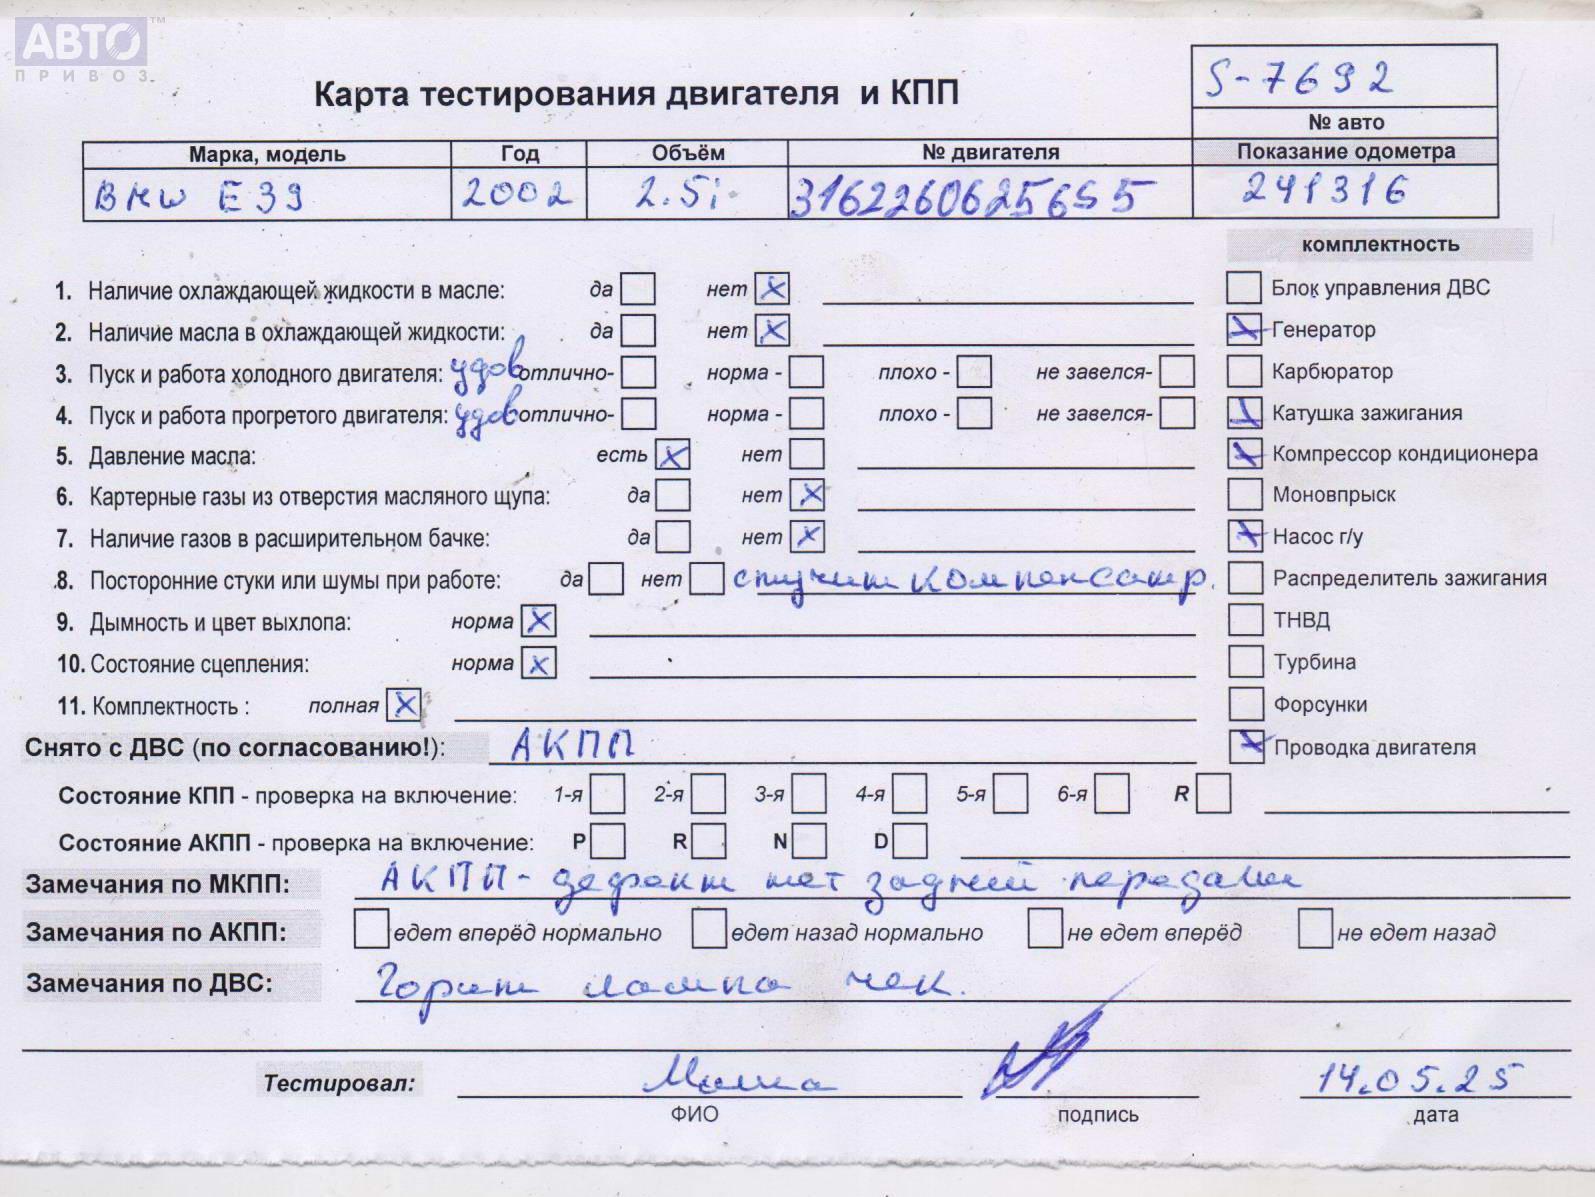 АВТО ™
ПРИВОЗ
S-7692
Карта тестирования двигателя и КПП
№ авто
Марка, модель Год Объём № двигателя Показание одометра
BMW E39 2002 2.5i 241316
комплектность
1. Наличие охлаждающей жидкости в масле: да нет X Блок управления ДВС
2. Наличие масла в охлаждающей жидкости: да нет X X Генератор
3. Пуск и работа холодного двигателя: удов отлично- норма - плохо - не завелся- Карбюратор
4. Пуск и работа прогретого двигателя: удов отлично- норма - плохо - не завелся- X Катушка зажигания
5. Давление масла: есть X нет X Компрессор кондиционера
6. Картерные газы из отверстия масляного щупа: да нет X Моновпрыск
7. Наличие газов в расширительном бачке: да нет X X Насос г/у
8. Посторонние стуки или шумы при работе: да нет стучит компенсатр. Распределитель зажигания
9. Дымность и цвет выхлопа: норма X ТНВД
10. Состояние сцепления: норма X Турбина
11. Комплектность : полная X Форсунки
Снято с ДВС (по согласованию!): АКПП X Проводка двигателя
Состояние КПП - проверка на включение: 1-я 2-я 3-я 4-я 5-я 6-я R
Состояние АКПП - проверка на включение: P R N D
Замечания по МКПП: АКПП - дефект нет задней передачи
Замечания по АКПП: едет вперёд нормально едет назад нормально не едет вперёд не едет назад
Замечания по ДВС: Горит лампа чек.
Тестировал: 14.05.25
ФИО подпись дата